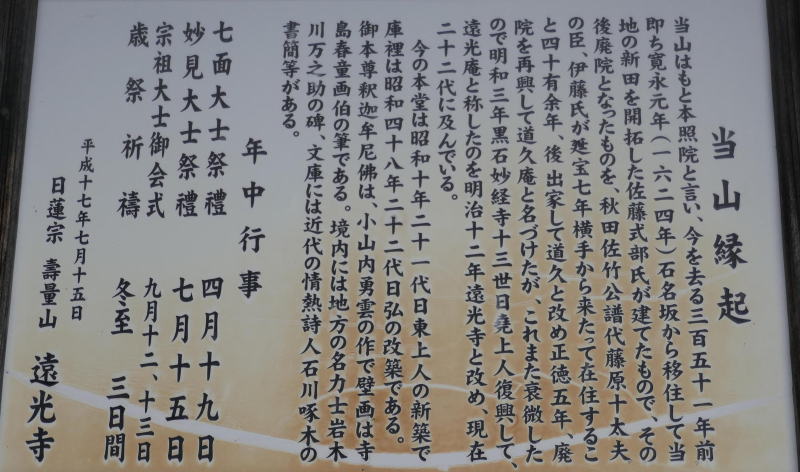 当山縁起
当山はもと本照院と言い、今を去る三百五十一年前
即ち寛永元年(一六二四年)石名坂から移住して当
地の新田を開拓した佐藤式部氏が建てたもので、その
後廃院となったものを、秋田佐竹公譜代藤原十太夫
の臣、伊藤氏が延宝七年横手から来たって在住するこ
と四十有余年、後出家して道久と改め正徳五年、廃
院を再興して道久庵と名づけたが、これまた衰微した
ので明和三年黒石妙経寺十三世日堯上人復興して、
遠光庵と称したのを明治十二年遠光寺と改め、現在
二十二代に及んでいる。
今の本堂は昭和十年二十一代日東上人の新築で
庫裡は昭和四十八年二十二代日弘の改築である。
御本尊釈迦牟尼佛は、小山内勇雲の作で壁画は寺
島春童画伯の筆である。境内には地方の名力士岩木
川万之助の碑、文庫には近代の情熱詩人石川啄木の
書簡等がある。
年中行事
七面大士祭禮 四月十九日
妙見大士祭禮 七月十五日
宗祖大士御会式 九月十二、十三日
歳祭祈禱 冬至 三日間
平成十七年七月十五日
日蓮宗 壽量山 遠光寺